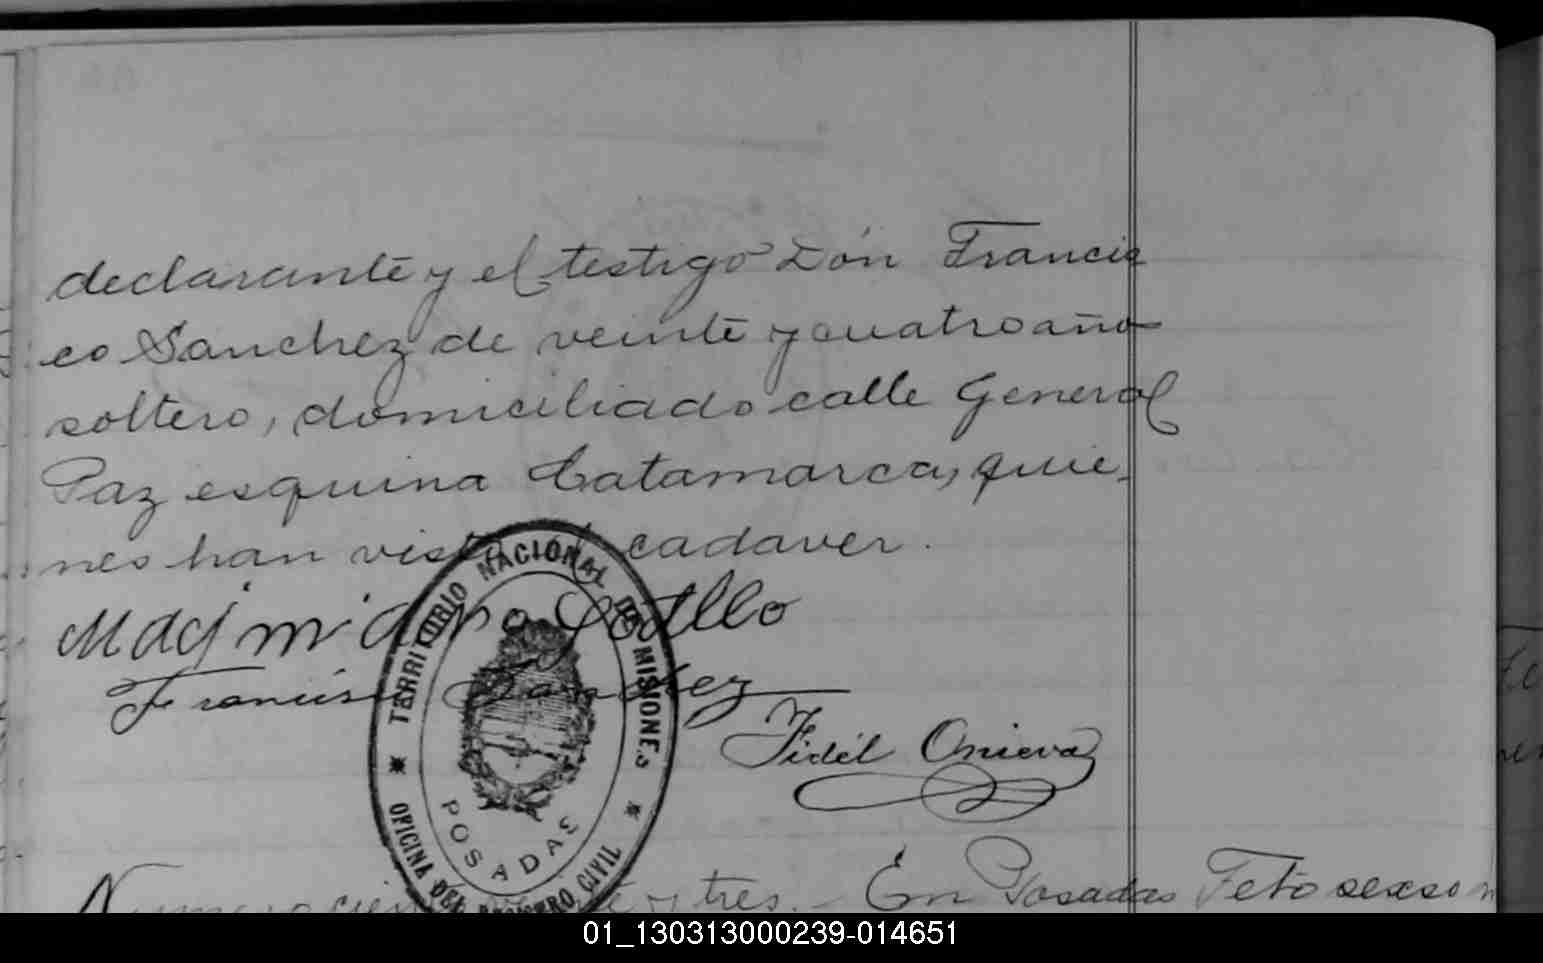 declarante y el testigo Don Francis
co Sanchez de veinte y cuatro años
soltero, domiciliado calle General
Paz esquina Catamarca, quie-
nes han visto el cadaver.
Francisco Sanchez
Fidél Onieva
TERRITORIO NACIONAL DE MISIONES
POSADAS
OFICINA DEL REGISTRO CIVIL
Numero y tres. - En Posadas Feto sexso
01_130313000239-014651